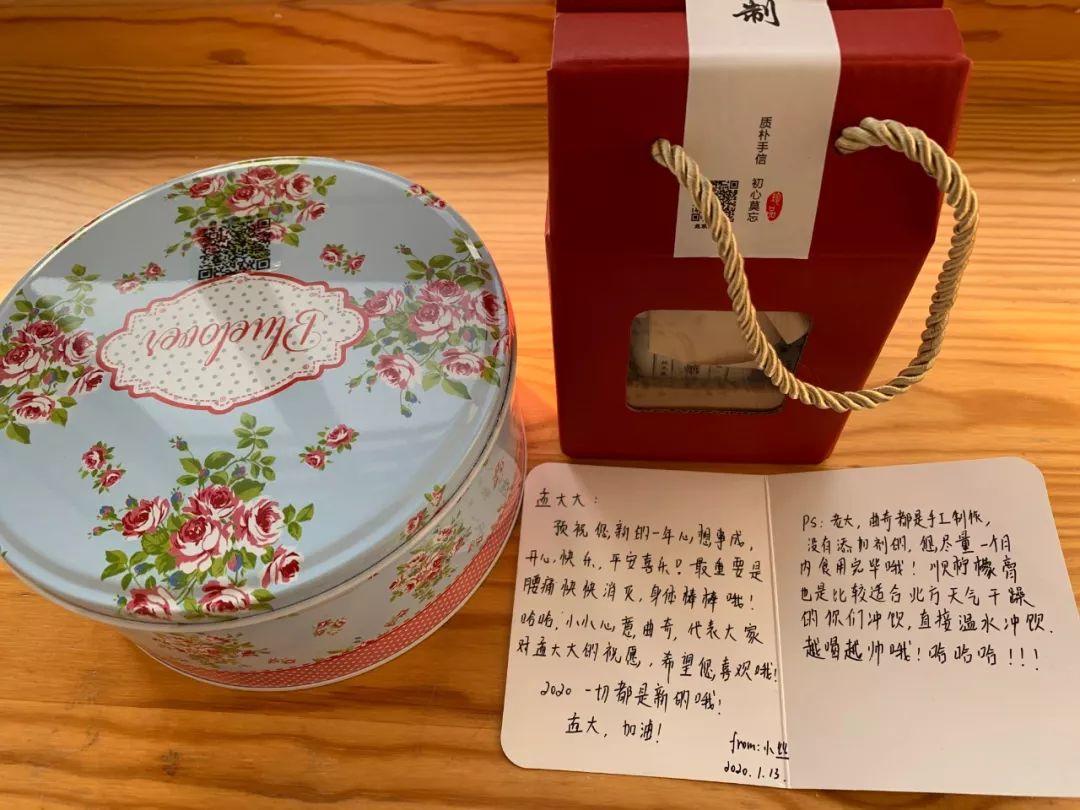 Bluelover
制
质朴手信
初心莫忘
孟大大:
预祝您新的一年心想事成,
开心快乐,平安喜乐!最重要是
腰痛快快消灭,身体棒棒哦!
哈哈,小小心意,曲奇,代表大家
对孟大大的祝愿,希望您喜欢哦!
2020 一切都是新的哦!
孟大,加油!
from:小丝
2020.1.13.
PS:老大,曲奇都是手工制作,
没有添加剂的,您尽量一个月
内食用完毕哦!川贝柠檬膏
也是比较适合北方天气干燥
的你们冲饮,直接温水冲饮.
越喝越帅哦!哈哈哈!!!